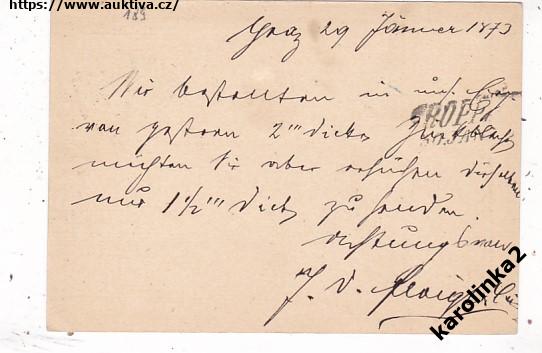 https://www.auktiva.cz/
189
Graz 29 Jänner 1873
Wir bestellten in uns.
von gestern 2''' dicke
TROPP
möchten Sie aber ersuchen dieselben
nur 1½''' dick zu senden.
Achtungsvoll
J. v.
karolinka2